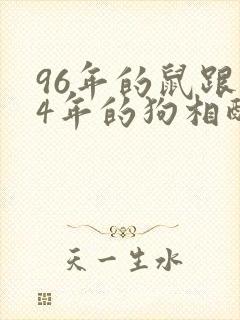 96年的鼠跟
4年的狗相
天一生水